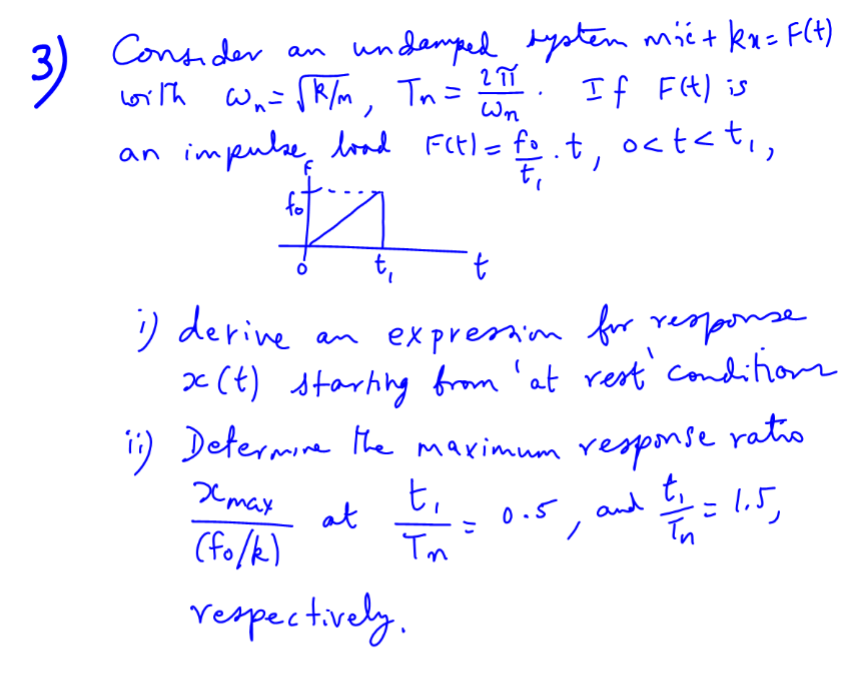 3) Consider an undamped system mẍ + kx = F(t)
with ωn = √k/m, Tn = 2π/ωn. If F(t) is
an impulse load F(t) = f₀/t₁ · t, 0 < t < t₁,
F
f₀
0 t₁ t
i) derive an expression for response
x(t) starting from 'at rest' conditions
ii) Determine the maximum response ratio
xmax/(f₀/k) at t₁/Tn = 0.5, and t₁/Tn = 1.5,
respectively.